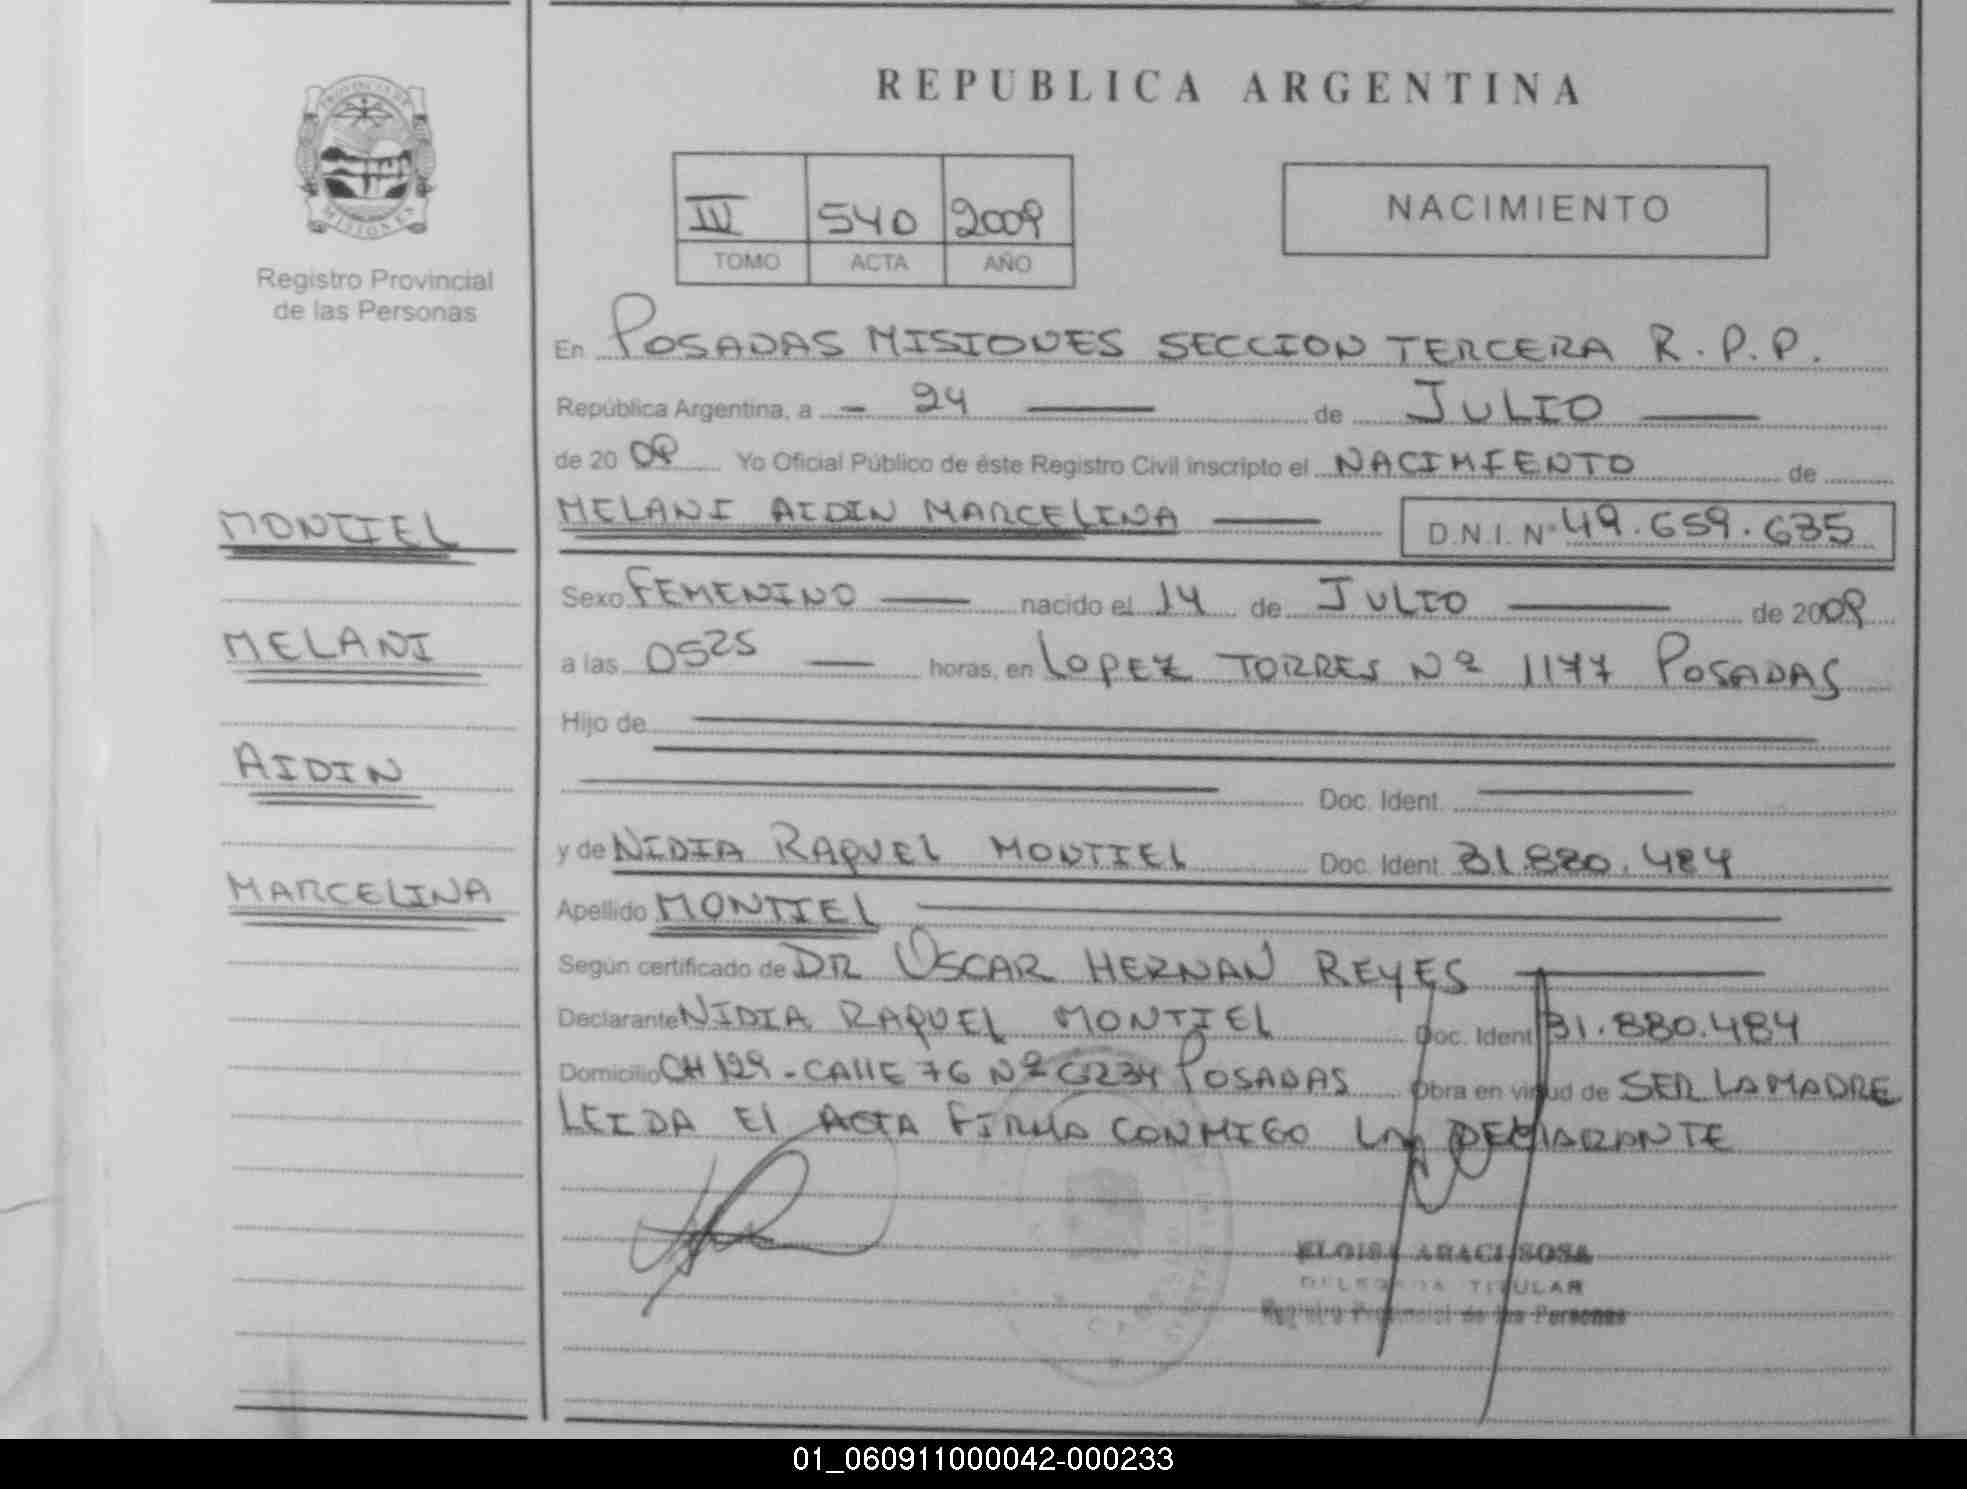 REPUBLICA ARGENTINA
PROVINCIA DE
MISIONES
Registro Provincial
de las Personas
IV 540 2009
TOMO ACTA AÑO
NACIMIENTO
En POSADAS MISIONES SECCION TERCERA R.P.P.
República Argentina, a - 24 — de JULIO —
de 2009 Yo Oficial Público de éste Registro Civil inscripto el NACIMIENTO de
MELANI AIDIN MARCELINA — D.N.I. Nº 49.659.635
Sexo FEMENINO — nacido el 14 de JULIO — de 2009
a las 0525 — horas, en LOPEZ TORRES Nº 1177 POSADAS
Hijo de
Doc. Ident.
y de NIDIA RAQUEL MONTIEL Doc. Ident. 31.880.484
Apellido MONTIEL
Según certificado de DR OSCAR HERNAN REYES
Declarante NIDIA RAQUEL MONTIEL Doc. Ident 31.880.484
Domicilio CH 129 - CALLE 76 Nº 6234 POSADAS Obra en virtud de SER LA MADRE
LEIDA EL ACTA FIRMA CONMIGO LA DECLARANTE
MONTIEL
MELANI
AIDIN
MARCELINA
ELOISA ARACI SOSA
DELEGADA TITULAR
Registro Provincial de las Personas
01_060911000042-000233